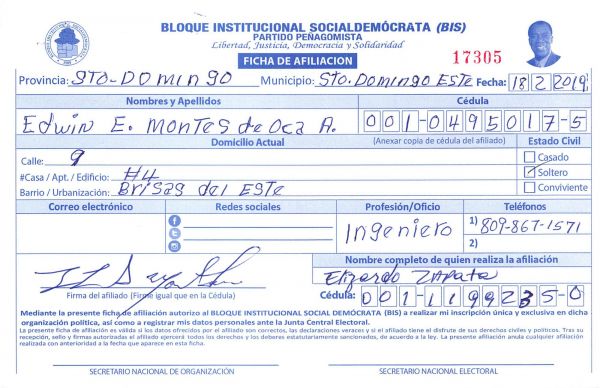 BLOQUE INSTITUCIONAL SOCIALDEMÓCRATA (BIS)
PARTIDO PEÑAGOMISTA
Libertad, Justicia, Democracia y Solidaridad
FICHA DE AFILIACION 17305
Provincia: STO-DOMINGO Municipio: Sto. DOMINGO ESTE Fecha: 18 2 2019
Nombres y Apellidos Cédula
Edwin E. Montes de Oca A. 001-0495017-5
Domicilio Actual (Anexar copia de cédula del afiliado) Estado Civil
Calle: 9 Casado
#Casa / Apt. / Edificio: #4 Soltero
Barrio / Urbanización: Brisas del Este Conviviente
Correo electrónico Redes sociales Profesión/Oficio Teléfonos
Ingeniero 1) 809-867-1571
2)
Nombre completo de quien realiza la afiliación
Elizardo Zapata
Firma del afiliado (Firme igual que en la Cédula) Cédula: 001-1199235-0
Mediante la presente ficha de afiliación autorizo al BLOQUE INSTITUCIONAL SOCIAL DEMÓCRATA (BIS) a realizar mi inscripción única y exclusiva en dicha
organización política, así como a registrar mis datos personales ante la Junta Central Electoral.
La presente ficha de afiliación es válida si los datos ofrecidos por el afiliado son correctos, las declaraciones veraces y si el afiliado tiene el disfrute de sus derechos civiles y políticos. Tras su
recepción, sello y firmas autorizadas el afiliado ejercerá todos los derechos y los deberes estatutariamente sancionados, de acuerdo a la ley. La presente afiliación anula cualquier afiliación
realizada con anterioridad a la fecha que aparece en esta ficha.
SECRETARIO NACIONAL DE ORGANIZACIÓN SECRETARIO NACIONAL ELECTORAL